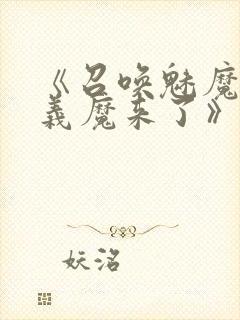 《召唤魅魔
义魔来了》
妖洺